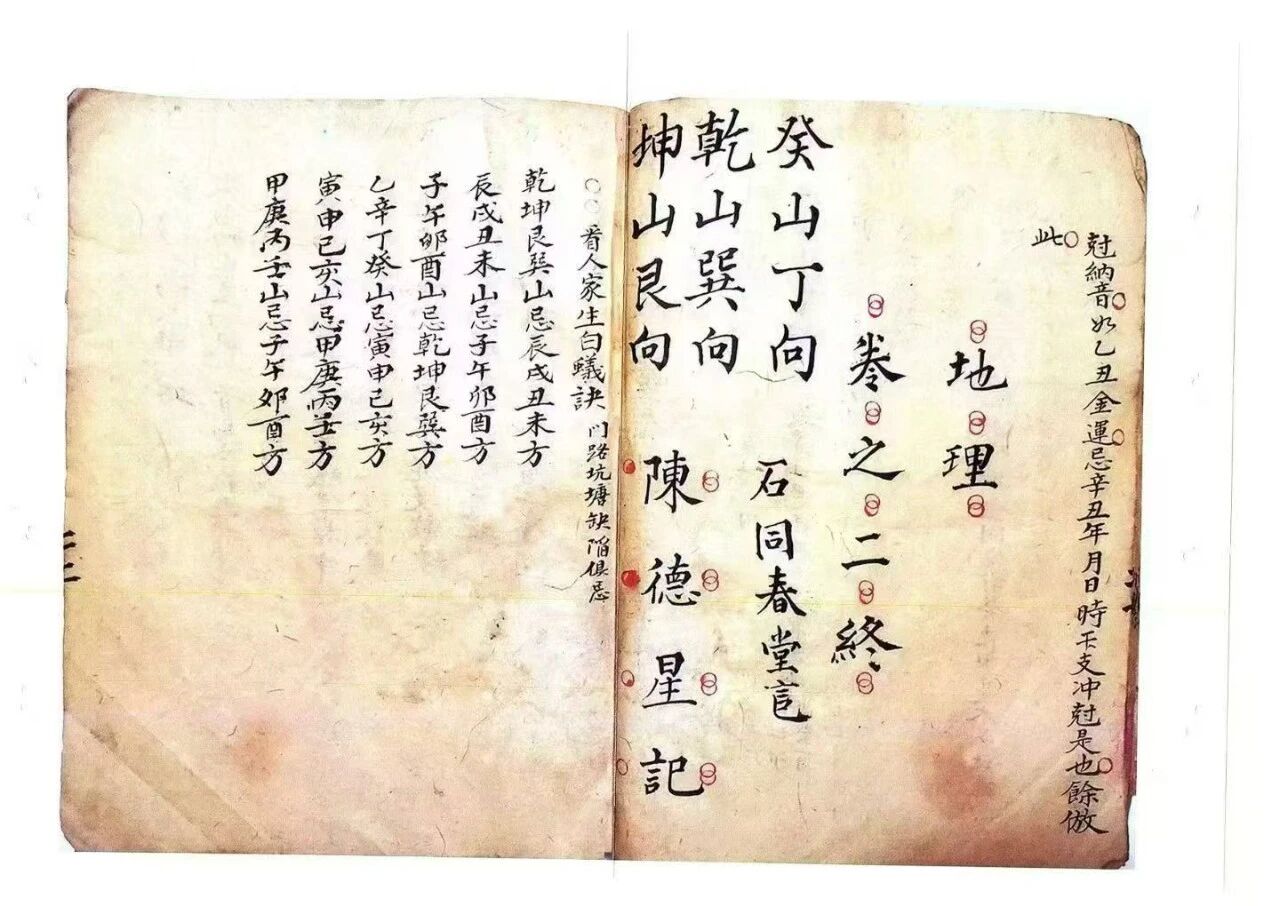 尅納音如乙丑金運忌辛丑年月日時干支冲尅是也餘倣
此
地理
卷之二終
癸山丁向
石同春堂言
乾山巽向
坤山艮向
陳德星記
○○看人家生白蟻訣 门路坑塘缺陷俱忌
乾坤艮巽山忌辰戌丑未方
辰戌丑未山忌子午卯酉方
子午卯酉山忌乾坤艮巽方
乙辛丁癸山忌寅申巳亥方
寅申巳亥山忌甲庚丙壬方
甲庚丙壬山忌子午卯酉方